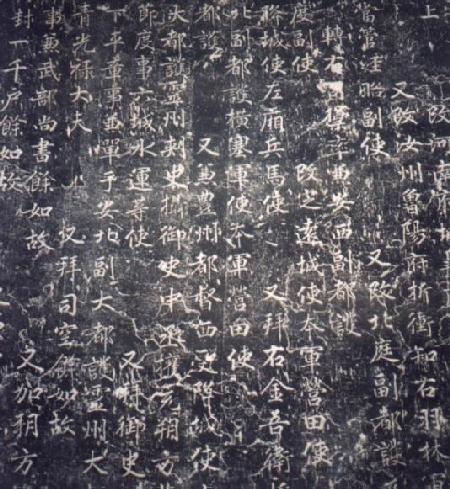 上 改河南府城
又改汝州魯陽府折衝知右羽林軍
副使 又改北庭副都護
轉右司禦率兼安西副都護
度副使 改定遠城使本軍營田使
勝城使左廂兵馬使 又拜右金吾衛
北副都護橫塞軍使本軍營田使
都護 又兼豐州都督西受降城使
大都護靈州刺史攝御史中丞權充朔方
節度事六城水運等使 又拜御史
下平章事兼單于安北副大都護靈州大
青光祿大夫 又拜司空餘如故
事兼武部尚書餘如故 又加朔方
封一千戶餘如故